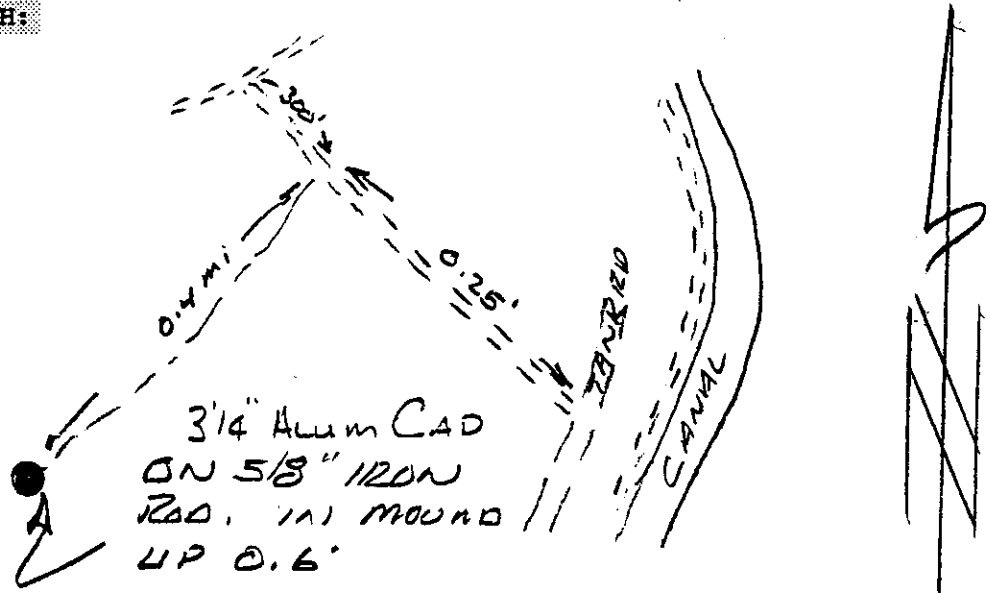 H:
300'
0.4 mi
0.25'
CANAL
3'14" Alum CAD
ON 5/8" IRON
ROD. IN MOUND
UP 0.6'
N